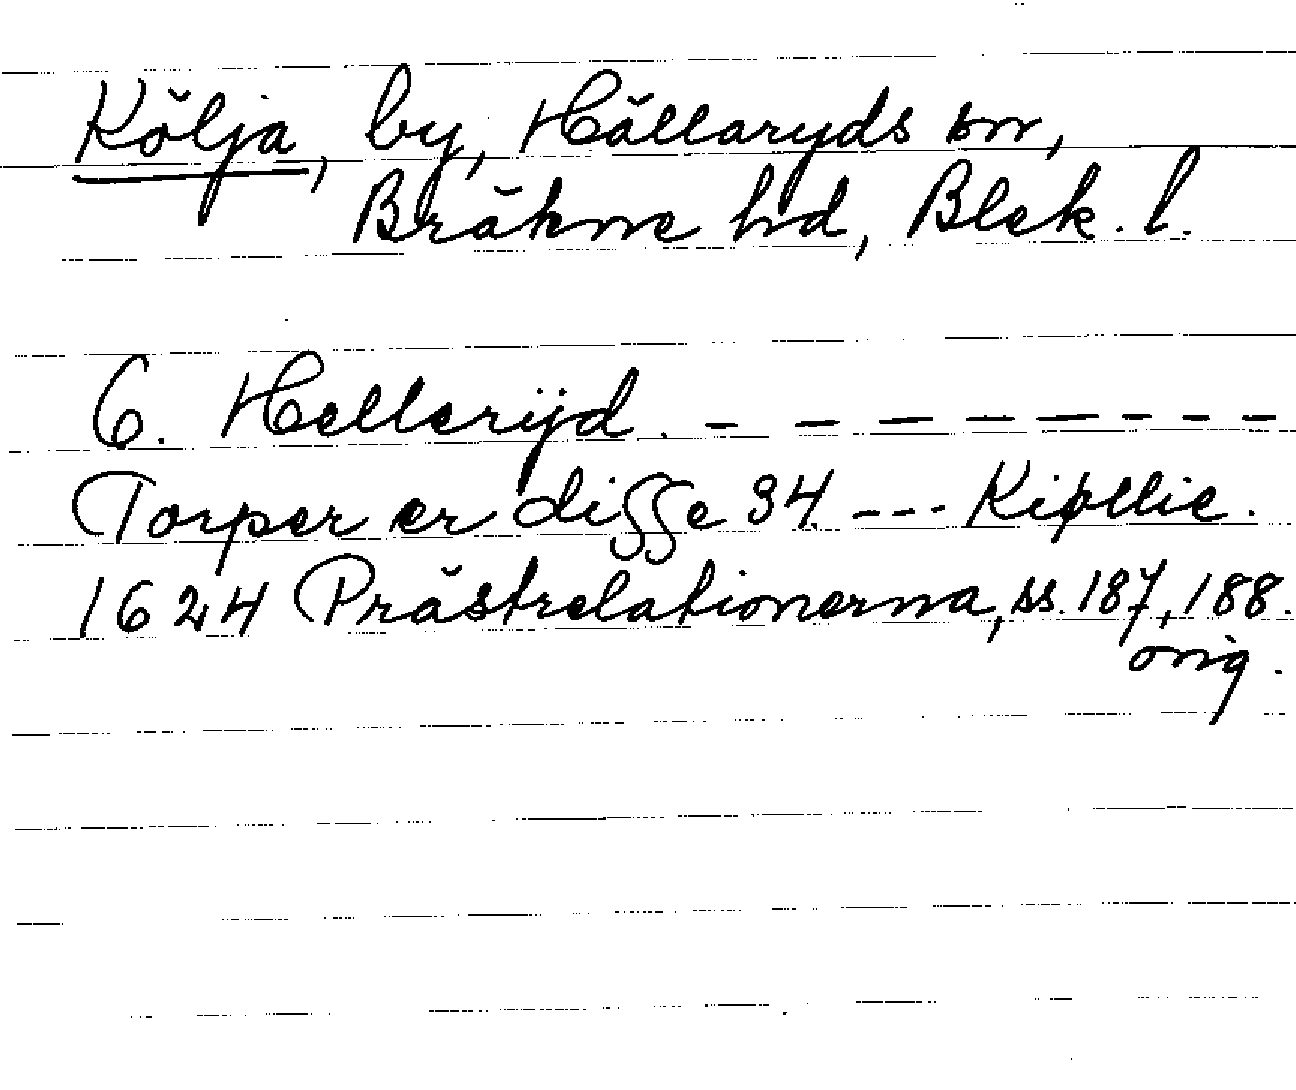 Kölja, by, Hällaryds sn,
Bräkne hd, Blek. l.
6. Hellerÿd. - - - - - - - -
Torper er disse 34. --- Kiøllie.
1624 Prästrelationerna, ss. 187, 188.
orig.